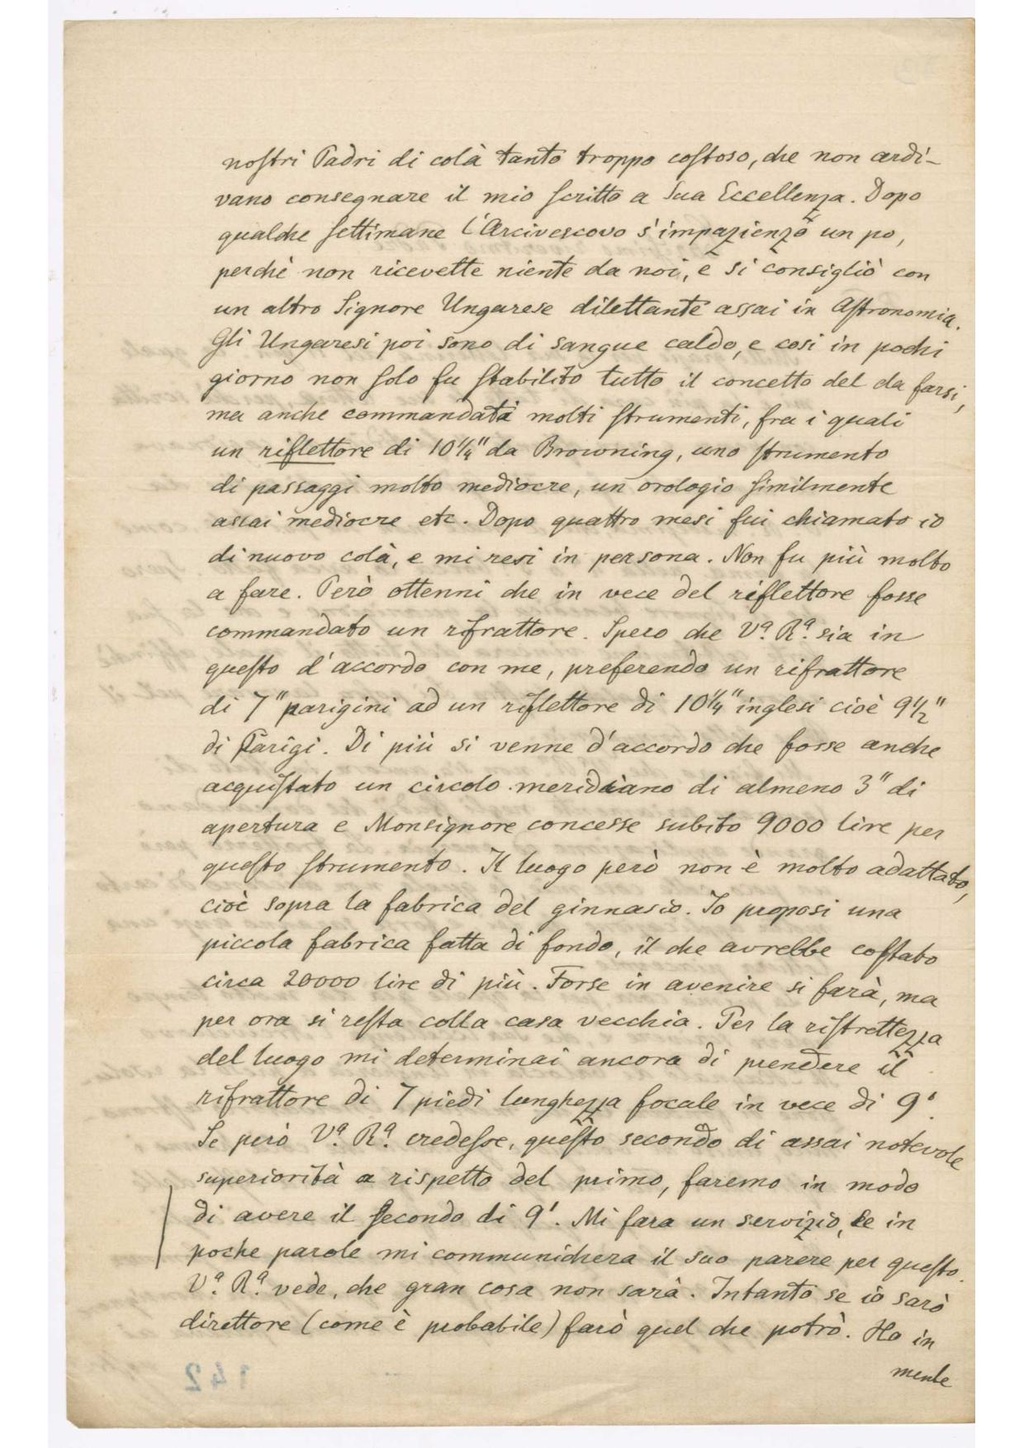 nostri Padri di colà tanto troppo costoso, che non ardi-
vano consegnare il mio scritto a Sua Eccellenza. Dopo
qualche settimane l'Arcivescovo s'impazienzò un po,
perchè non ricevette niente da noi, e si consigliò con
un altro Signore Ungarese dilettante assai in Astronomia.
Gli Ungaresi poi sono di sangue caldo, e così in pochi
giorno non solo fu stabilito tutto il concetto del da farsi,
ma anche commandata molti strumenti, fra i quali
un riflettore di 10 1/4" da Browning, uno strumento
di passaggi molto mediocre, un orologio similmente
assai mediocre etc. Dopo quattro mesi fui chiamato io
di nuovo colà, e mi resi in persona. Non fu più molto
a fare. Però ottenni che in vece del riflettore fosse
commandato un rifrattore. Spero che Vª. Rª. sia in
questo d'accordo con me, preferendo un rifrattore
di 7" parigini ad un riflettore di 10 1/4" inglesi cioè 9 1/2"
di Parigi. Di più si venne d'accordo che fosse anche
acquistato un circolo meridiano di almeno 3" di
apertura e Monsignore concesse subito 9000 lire per
questo strumento. Il luogo però non è molto adattato,
cioè sopra la fabrica del ginnasio. Io proposi una
piccola fabrica fatta di fondo, il che avrebbe costato
circa 20000 lire di più. Forse in avenire si farà, ma
per ora si resta colla casa vecchia. Per la ristrettezza
del luogo mi determinai ancora di prendere il
rifrattore di 7 piedi lunghezza focale in vece di 9'.
Se però Vª. Rª. credesse, questo secondo di assai notevole
superiorità a rispetto del primo, faremo in modo
di avere il secondo di 9'. Mi fara un servizio, se in
poche parole mi communichera il suo parere per questo.
Vª. Rª. vede, che gran cosa non sarà. Intanto se io sarò
direttore (come è probabile) farò quel che potrò. Ho in
mente
142